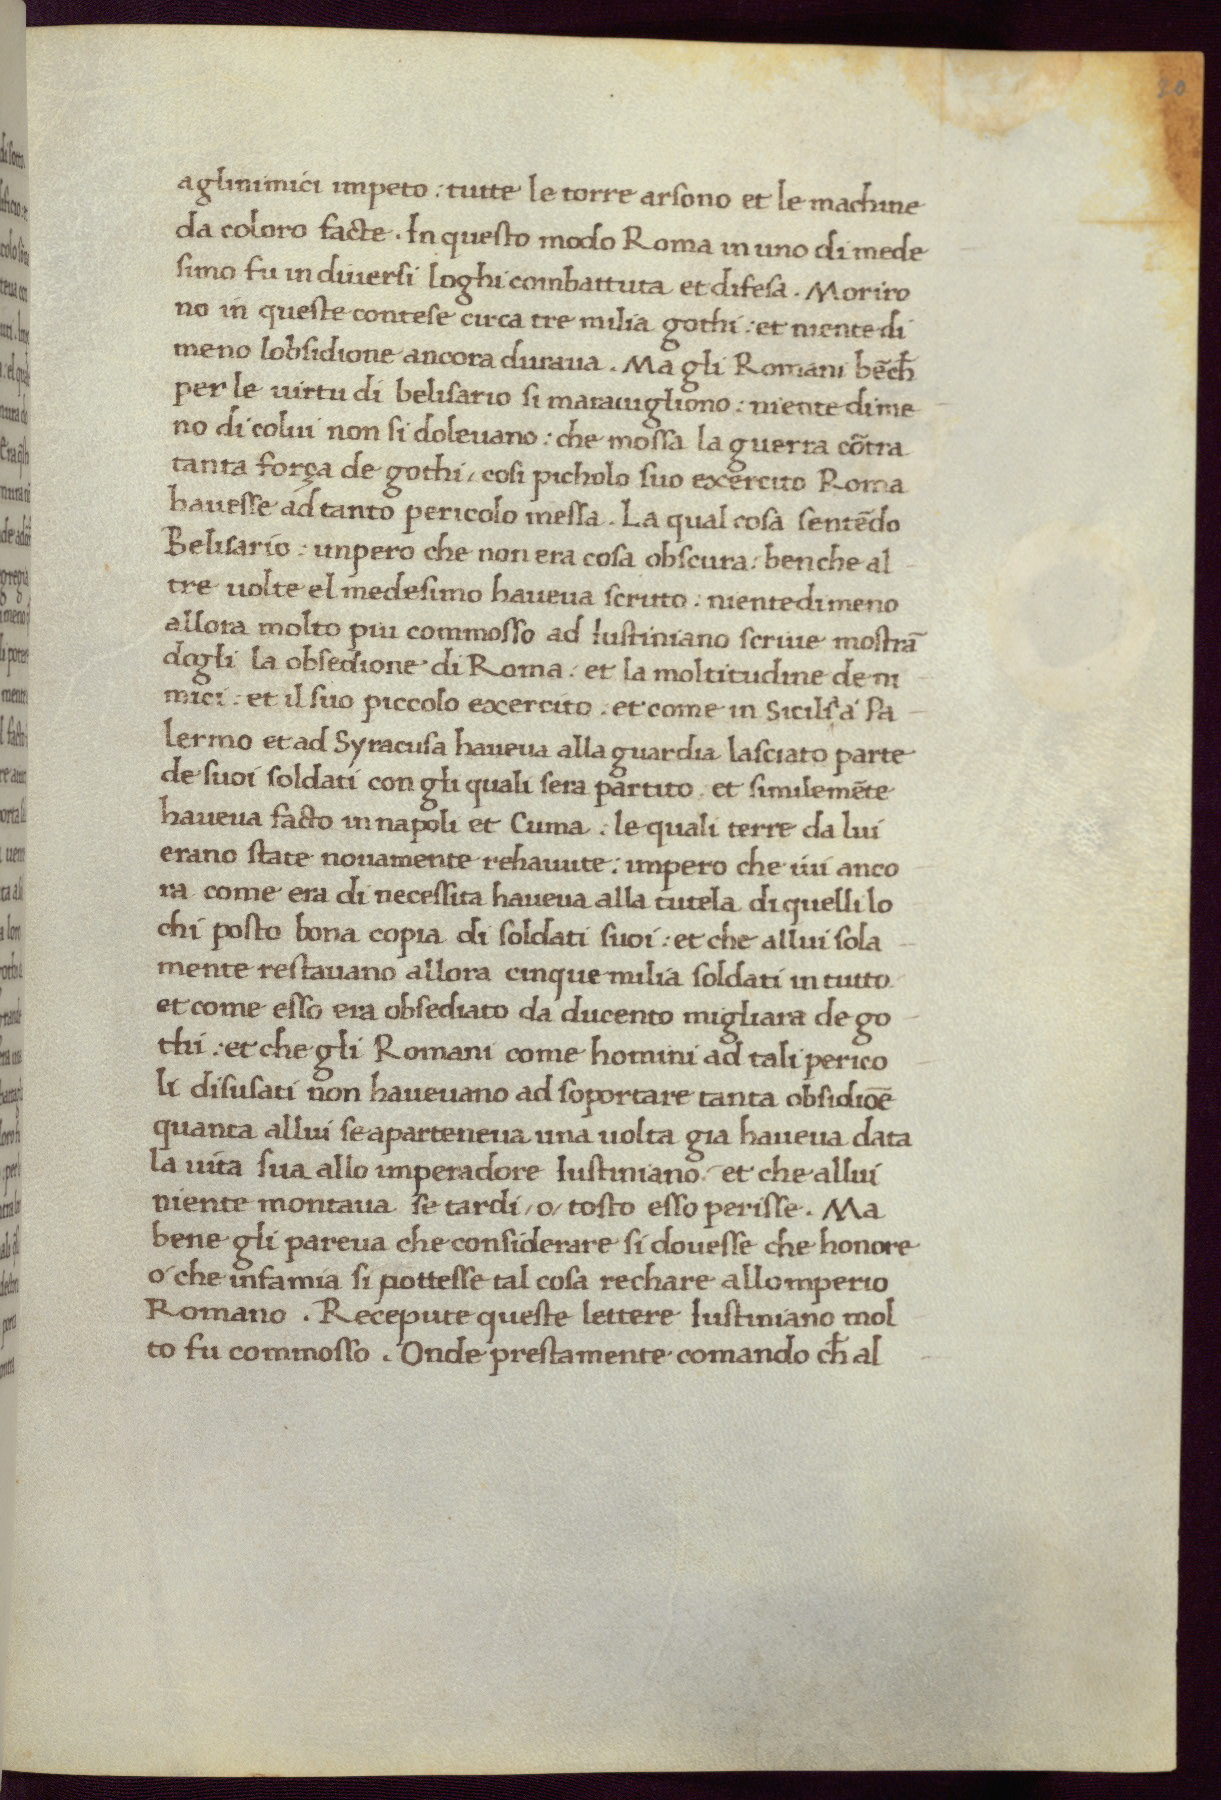 20
aglinimici impeto : tutte le torre arsono et le machine
da coloro facte . In questo modo Roma in uno di mede
simo fu in diuersi loghi combattuta et difesa . Moriro
no in queste contese circa tre milia gothi : et niente di
meno lobsidione ancora duraua . Ma gli Romani bẽch̃
per le uirtu di belisario si marauigliono : niente di me
no di colui non si doleuano : che mossa la guerra cõtra
tanta força de gothi / cosi picholo suo exercito Roma
hauesse ad tanto pericolo messa . La qual cosa sentẽdo
Belisario : impero che non era cosa obscura : benche al
tre uolte el medesimo haueua scritto : nientedimeno
allora molto piu commosso ad Iustiniano scriue mostrã
dogli la obsedione di Roma : et la moltitudine de ni
mici : et il suo piccolo exercito : et come in Sicilia a Pa
lermo et ad Syracusa haueua alla guardia lasciato parte
de suoi soldati con gli quali sera partito . et similemẽte
haueua facto in napoli et Cuma : le quali terre da lui
erano state nouamente rehauute : impero che iui anco
ra come era di necessita haueua alla tutela di quelli lo
chi posto bona copia di soldati suoi : et che allui sola
mente restauano allora cinque milia soldati in tutto
et come esso era obsediato da ducento migliara de go
thi : et che gli Romani come homini ad tali perico
li disusati non haueuano ad soportare tanta obsidiõe
quanta allui se aparteneua una uolta gia haueua data
la uita sua allo imperadore Iustiniano : et che allui
niente montaua se tardi / o / tosto esso perisse . Ma
bene gli pareua che considerare si douesse che honore
o che infamia si pottesse tal cosa rechare allomperio
Romano . Recepute queste lettere Iustiniano mol
to fu commosso . Onde prestamente comando ch̃ al